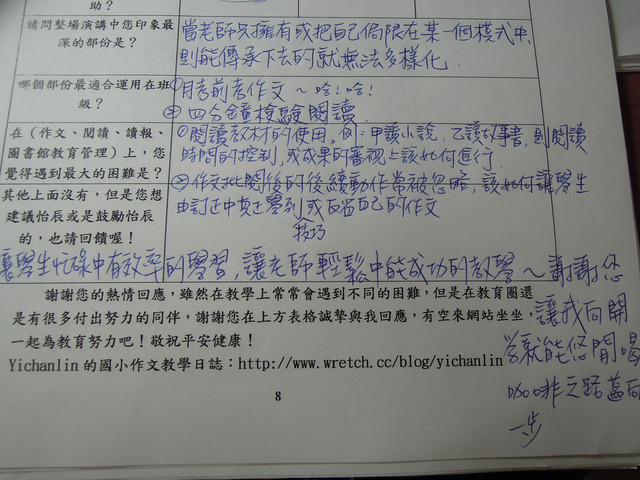 助？
請問整場演講中您印象最
深的部份是？
當老師只擁有或把自己侷限在某一個模式中,
則能傳承下去的就無法多樣化.
哪個部份最適合運用在班
級？
①月考前考作文～哈！哈！
②四分鐘檢驗閱讀.
在（作文、閱讀、讀報、
圖書館教育管理）上，您
覺得遇到最大的困難是？
①閱讀教材的使用. 例:甲讀小說, 乙讀故事書, 則閱讀
時間的控制, 或成果的審視上該如何進行.
其他上面沒有，但是您想
建議怡辰或是鼓勵怡辰
的，也請回饋喔！
②作文批閱後的後續動作常被忽略, 該如何讓學生
由訂正中真正學到或反省自己的作文
技巧
讓學生忙碌中有效率的學習, 讓老師輕鬆中能成功的教學～謝謝您
謝謝您的熱情回應，雖然在教學上常常會遇到不同的困難，但是在教育圈還
是有很多付出努力的同伴，謝謝您在上方表格誠摯與我回應，有空來網站坐坐，
一起為教育努力吧！敬祝平安健康！
Yichanlin 的國小作文教學日誌：http://www.wretch.cc/blog/yichanlin
讓我向開
學就能悠閒喝
咖啡之路邁向
一步
8